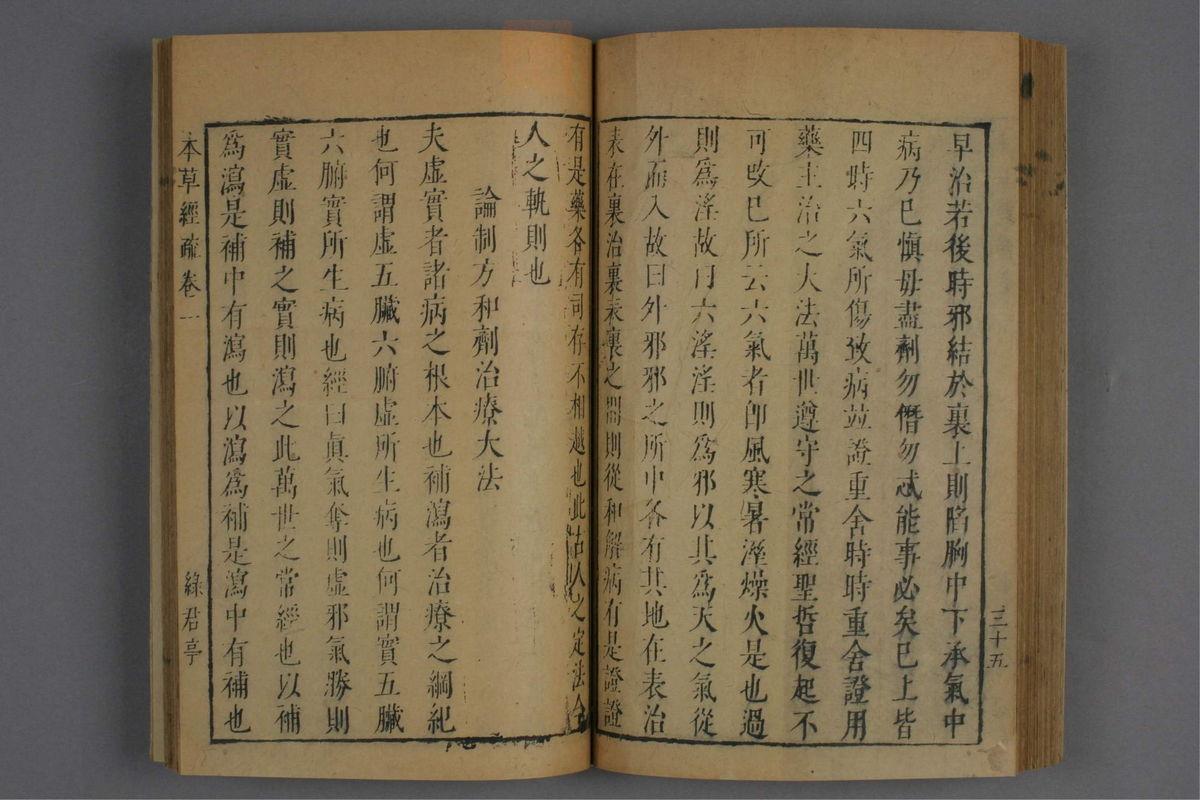 早治若後時邪結於裏上則陷胸中下承氣中
病乃已慎毋盡劑勿僭勿忒能事必矣已上皆
四時六氣所傷致病竝證重舍時時重舍證用
藥主治之大法萬世遵守之常經聖哲復起不
可改已所云六氣者卽風寒暑溼燥火是也過
則爲淫故曰六淫淫則爲邪以其爲天之氣從
外而入故曰外邪邪之所中各有其地在表治
表在裏治裏表裏之間則從和解病有是證證
有是藥各有司存不相越也此古人之定法今
人之軌則也
論制方和劑治療大法
夫虛實者諸病之根本也補瀉者治療之綱紀
也何謂虛五臟六腑虛所生病也何謂實五臟
六腑實所生病也經曰眞氣奪則虛邪氣勝則
實虛則補之實則瀉之此萬世之常經也以補
爲瀉是補中有瀉也以瀉爲補是瀉中有補也
三十五
本草經疏卷一
綠君亭